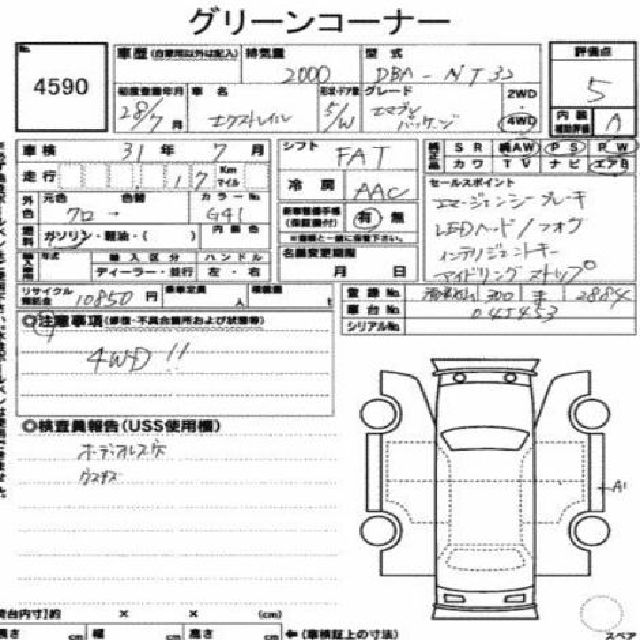 グリーンコーナー
No. 4590
車歴 (自家用以外は記入) 排気量 2000 型式 DBA-NT32 評価点 5
初度登録年月 28/7月 車名 エクストレイル 形状・ドア数 5/W グレード エマブレパッケージ 2WD 4WD 内装補助評価 A
車検 31年 7月 シフト FAT 純正 SR 純AW PS PW
走行 17 Km マイル 冷房 AAC カワ TV ナビ エアB
外色 元色 クロ 色替 → カラーNo. G41 有 無 セールスポイント
燃料 ガソリン・軽油・( ) 内装色 エマージェンシーブレーキ
年式 輸入区分 ハンドル 名義変更期限 LEDヘッド/フォグ
ディーラー・並行 左・右 月 日 インテリジェントキー
アイドリングストップ
リサイクル預託金 10850円 乗車定員 人 積載量 t 登録No. 300 2884
車台No. 045453
シリアルNo.
◎注意事項 (修復・不具合箇所および状態等)
4WD!!
◎検査員報告 (USS使用欄)
ボディオレスキ
ウスキズ
A1
荷台内寸) × × (cm)
長さ cm 幅 cm 高さ cm ←(車検証上の寸法)
スペア